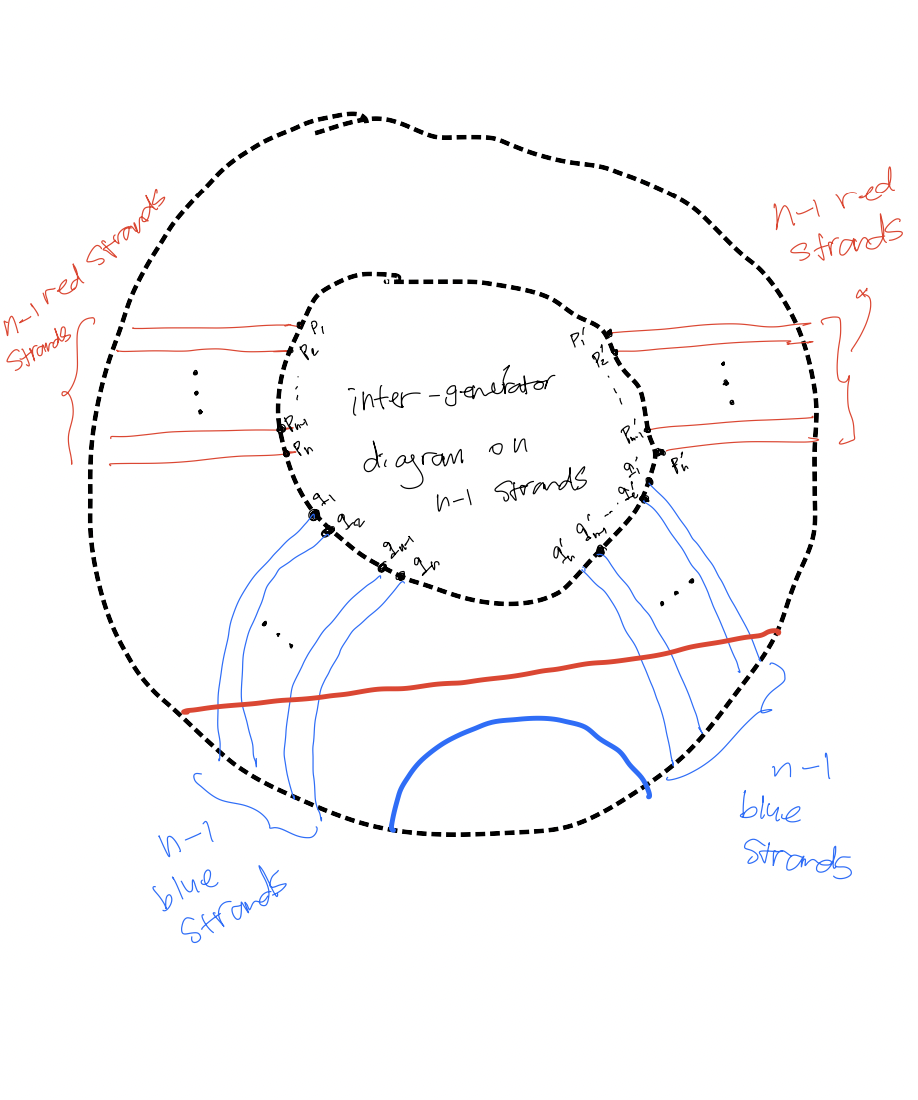 n-1 red strands
strands
n-1 red
strands
P₁
P₂
Pₙ₋₁
Pₙ
P₁'
P₂'
Pₙ₋₁'
Pₙ'
inter-generator
diagram on
n-1 strands
q₁
q₂
qₙ₋₁
qₙ
q₁'
q₂'
qₙ₋₁'
qₙ'
n-1
blue
strands
n-1
blue
strands